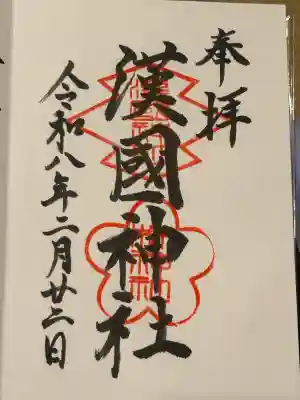 奉拝
漢國神社
令和八年二月廿三日